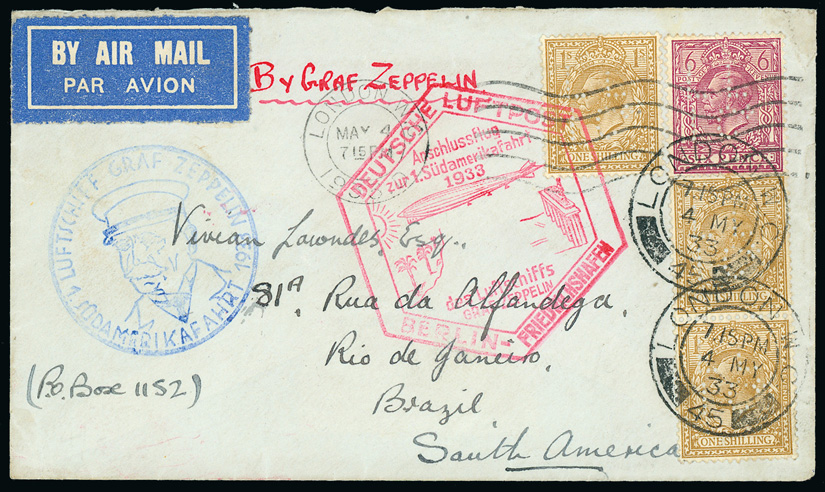 BY AIR MAIL
PAR AVION
By GRAF ZEPPELIN.
LONDON.W.
MAY 4
7 15PM
193
DEUSCHE LUFTPOST
Anschlussflug
zur 1. Südamerikafahrt
1933
des Luftschiffs
GRAF ZEPPELIN
BERLIN-
FRIEDRICHSHAFEN
1S
1S
ONE SHILLING
6
6
POSTAGE
SIX PENCE
LONDON
7.15PM
4 MY
33
45
SHILLING
LONDON.W.
7.15PM
4 MY
33
45
1S
ONE SHILLING
LUFTSCHIFF GRAF ZEPPELIN
1. SÜDAMERIKAFAHRT 1933
Vivian Lowndes, Esq.,
81A Rua da Alfandega,
Rio de Janeiro,
(P.O. Box 1152)
Brazil
South America